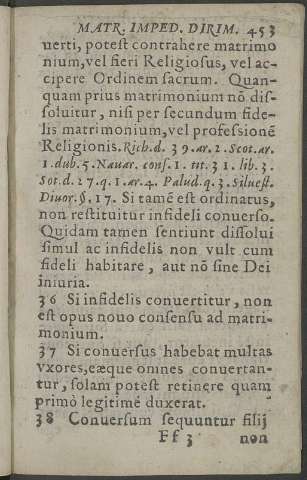 MATR. IMPED. DIRIM. 453
uerti, potest contrahere matrimo
nium, vel fieri Religiosus, vel ac-
cipere Ordinem sacrum. Quan-
quam prius matrimonium nõ dis-
soluitur, nisi per secundum fide-
lis matrimonium, vel professionẽ
Religionis. Rich. d. 39. ar. 2. Scot. ar.
1. dub. 5. Nauar. cons. 1. tit. 31. lib. 3.
Sot. d. 27. q. 1. ar. 4. Palud. q. 3. Siluest.
Diuor. §. 17. Si tamẽ est ordinatus,
non restituitur infideli conuerso.
Quidam tamen sentiunt dissolui
simul ac infidelis non vult cum
fideli habitare, aut nõ sine Dei
iniuria.
36 Si infidelis conuertitur, non
est opus nouo consensu ad matri-
monium.
37 Si conuersus habebat multas
vxores, eæque omnes conuertan-
tur, solam potest retinere quam
primò legitimè duxerat.
38 Conuersum sequuntur filij
Ff 3 non